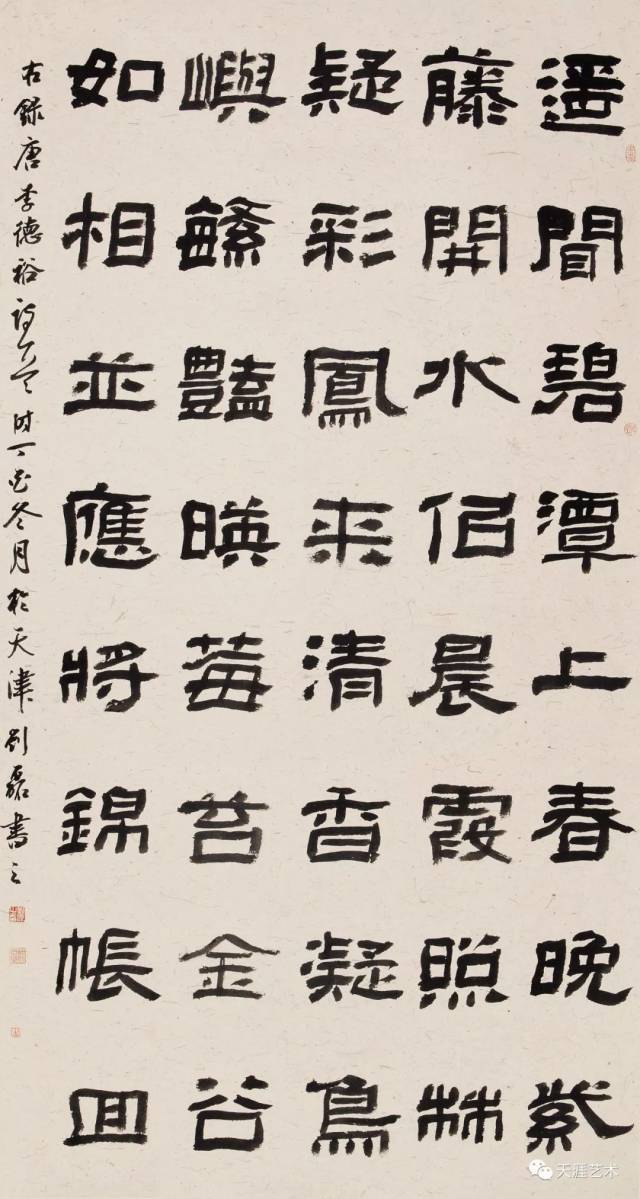 遥聞碧潭上春晚紫
藤開水似晨霞照林
疑彩鳳來清香凝島
嶼繁豔暎莓苔金谷
如相並應將錦帳回
右錄唐李德裕詩一首時丁酉冬月於天津劉磊書之
天涯艺术